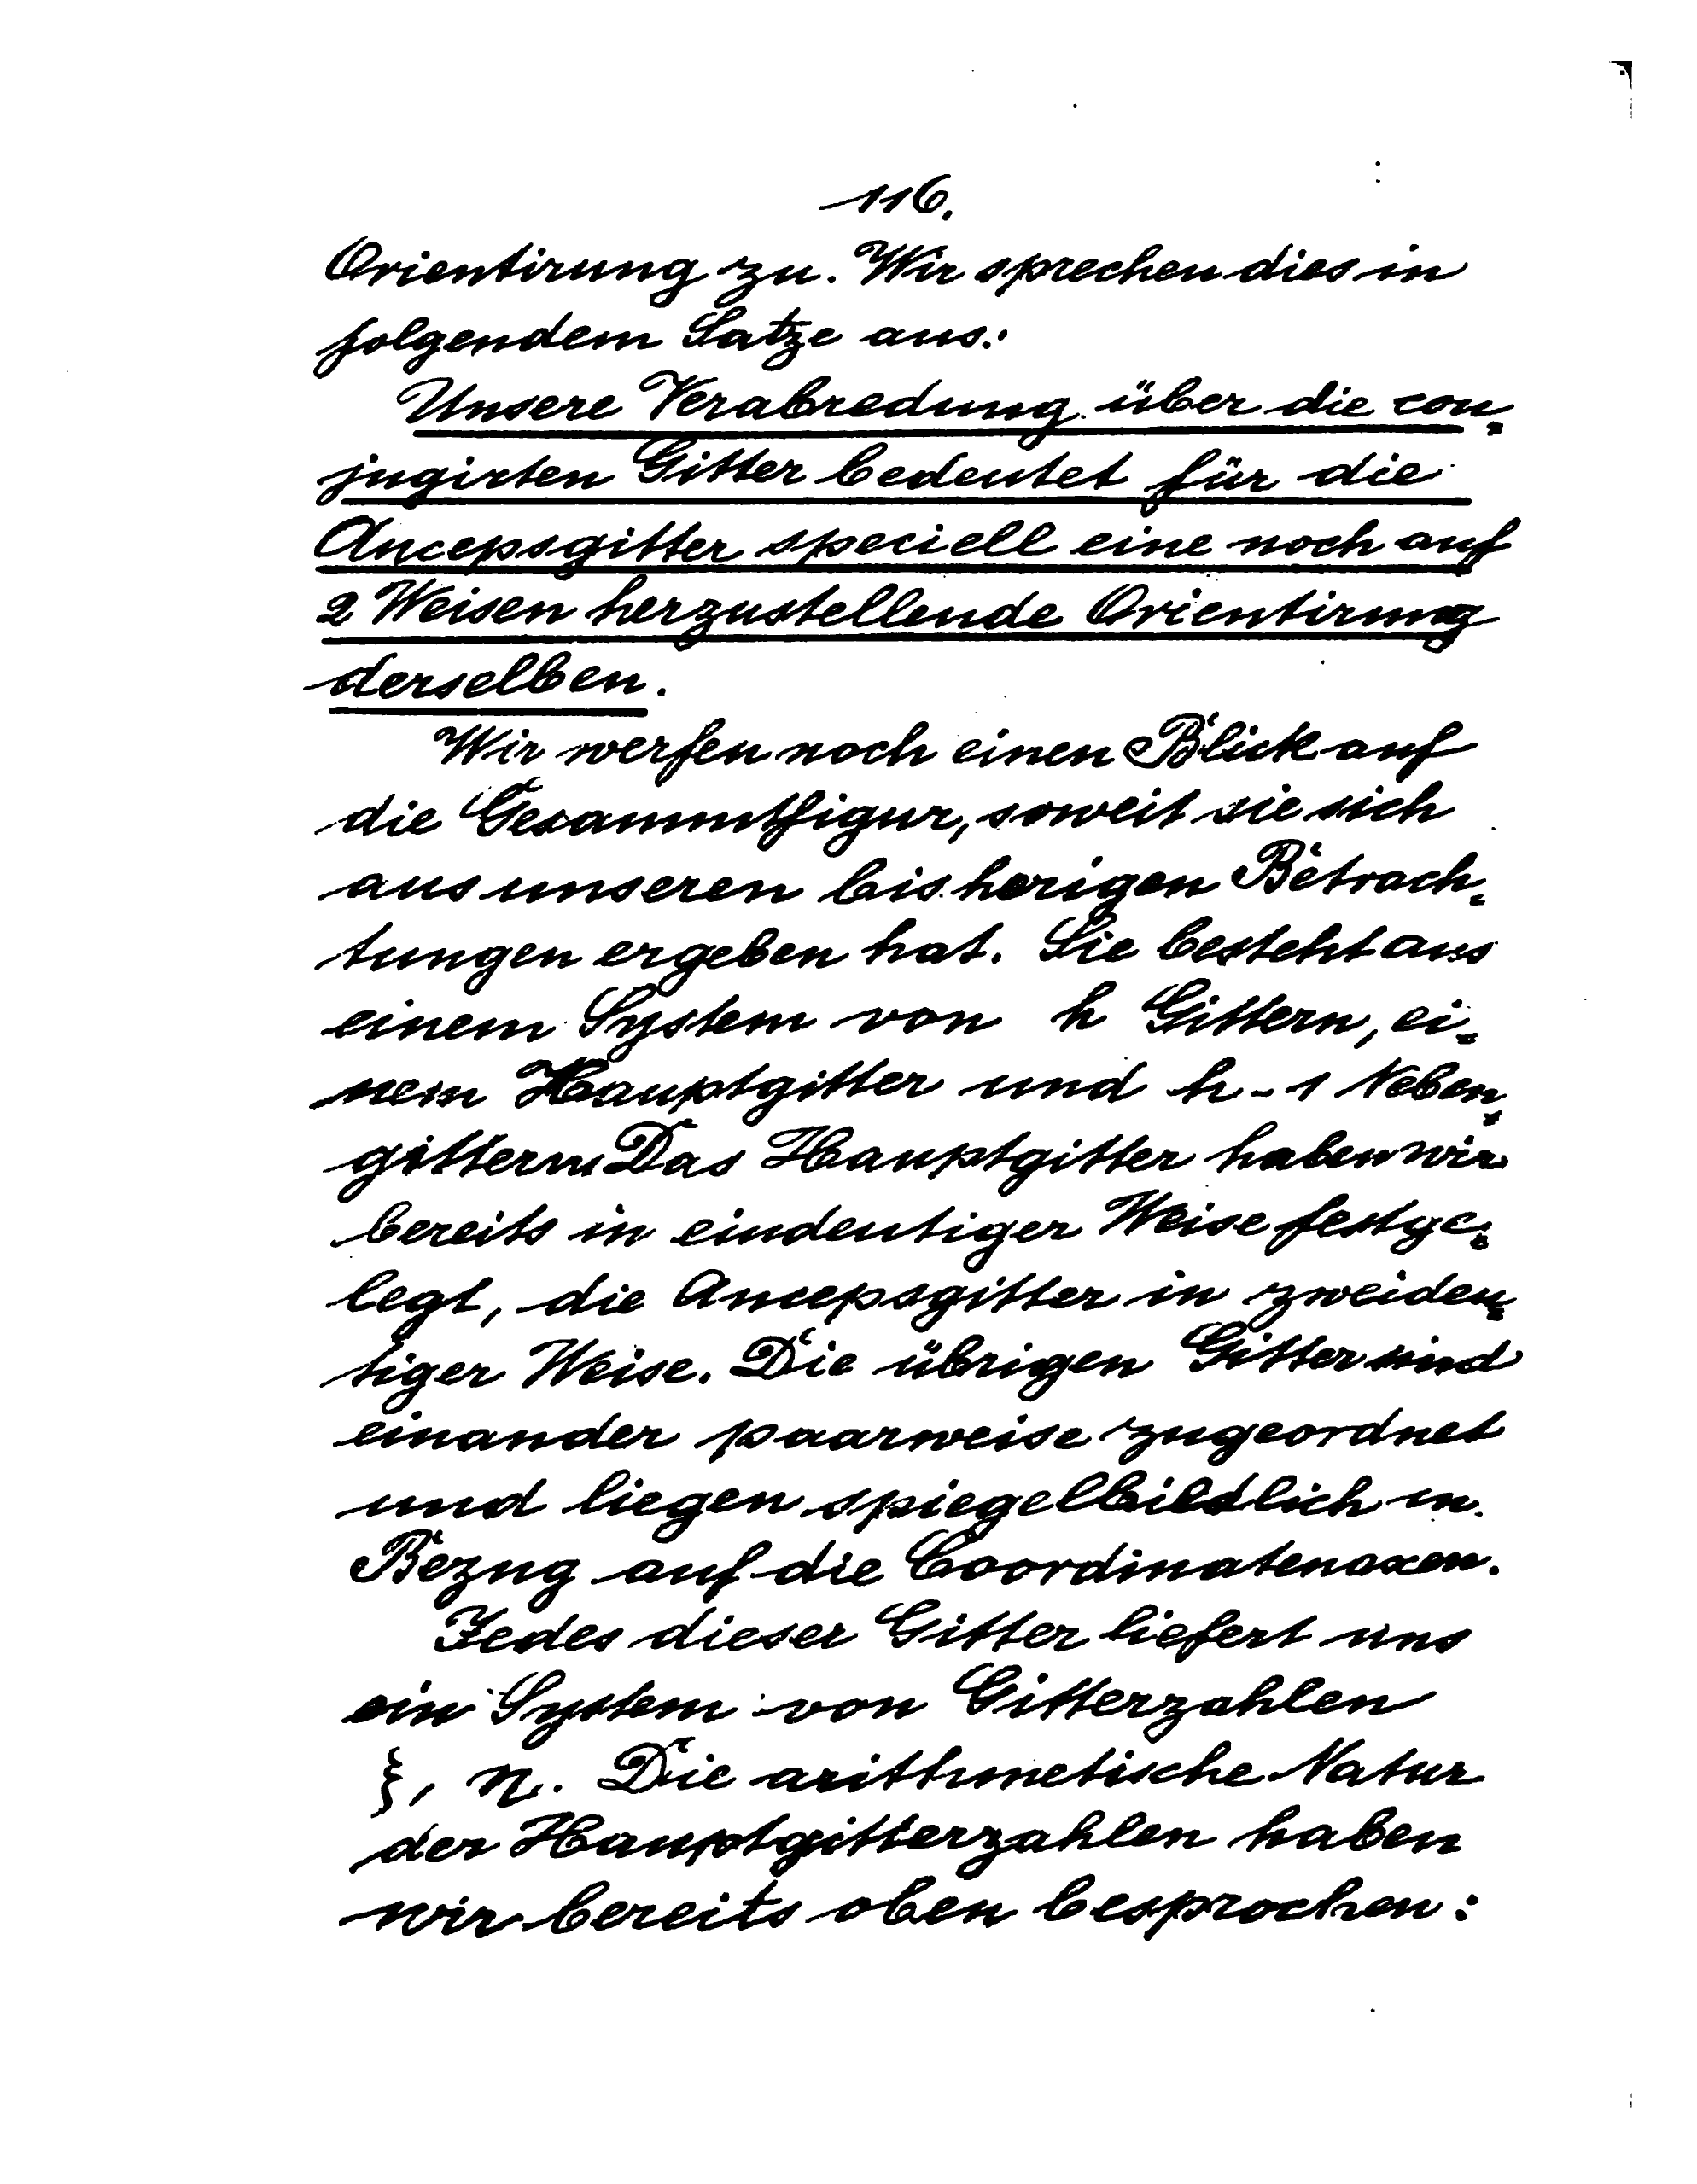 116.
Orientirung zu. Wir sprechen dies in
folgendem Satze aus:
Unsere Verabredung über die con-
jugirten Gitter bedeutet für die
Ancepsgitter speciell eine noch auf
2 Weisen herzustellende Orientirung
derselben.
Wir werfen noch einen Blick auf
die Gesammtfigur, soweit sie sich
aus unseren bisherigen Betrach-
tungen ergeben hat. Sie besteht aus
einem System von h Gittern, ei-
nem Hauptgitter und h-1 Neben-
gittern. Das Hauptgitter haben wir
bereits in eindeutiger Weise festge-
legt, die Ancepsgitter in zweideu-
tiger Weise. Die übrigen Gitter sind
einander paarweise zugeordnet
und liegen spiegelbildlich in
Bezug auf die Coordinatenaxen.
Jedes dieser Gitter liefert uns
ein System von Gitterzahlen
ξ, η. Die arithmetische Natur
der Hauptgitterzahlen haben
wir bereits oben besprochen: